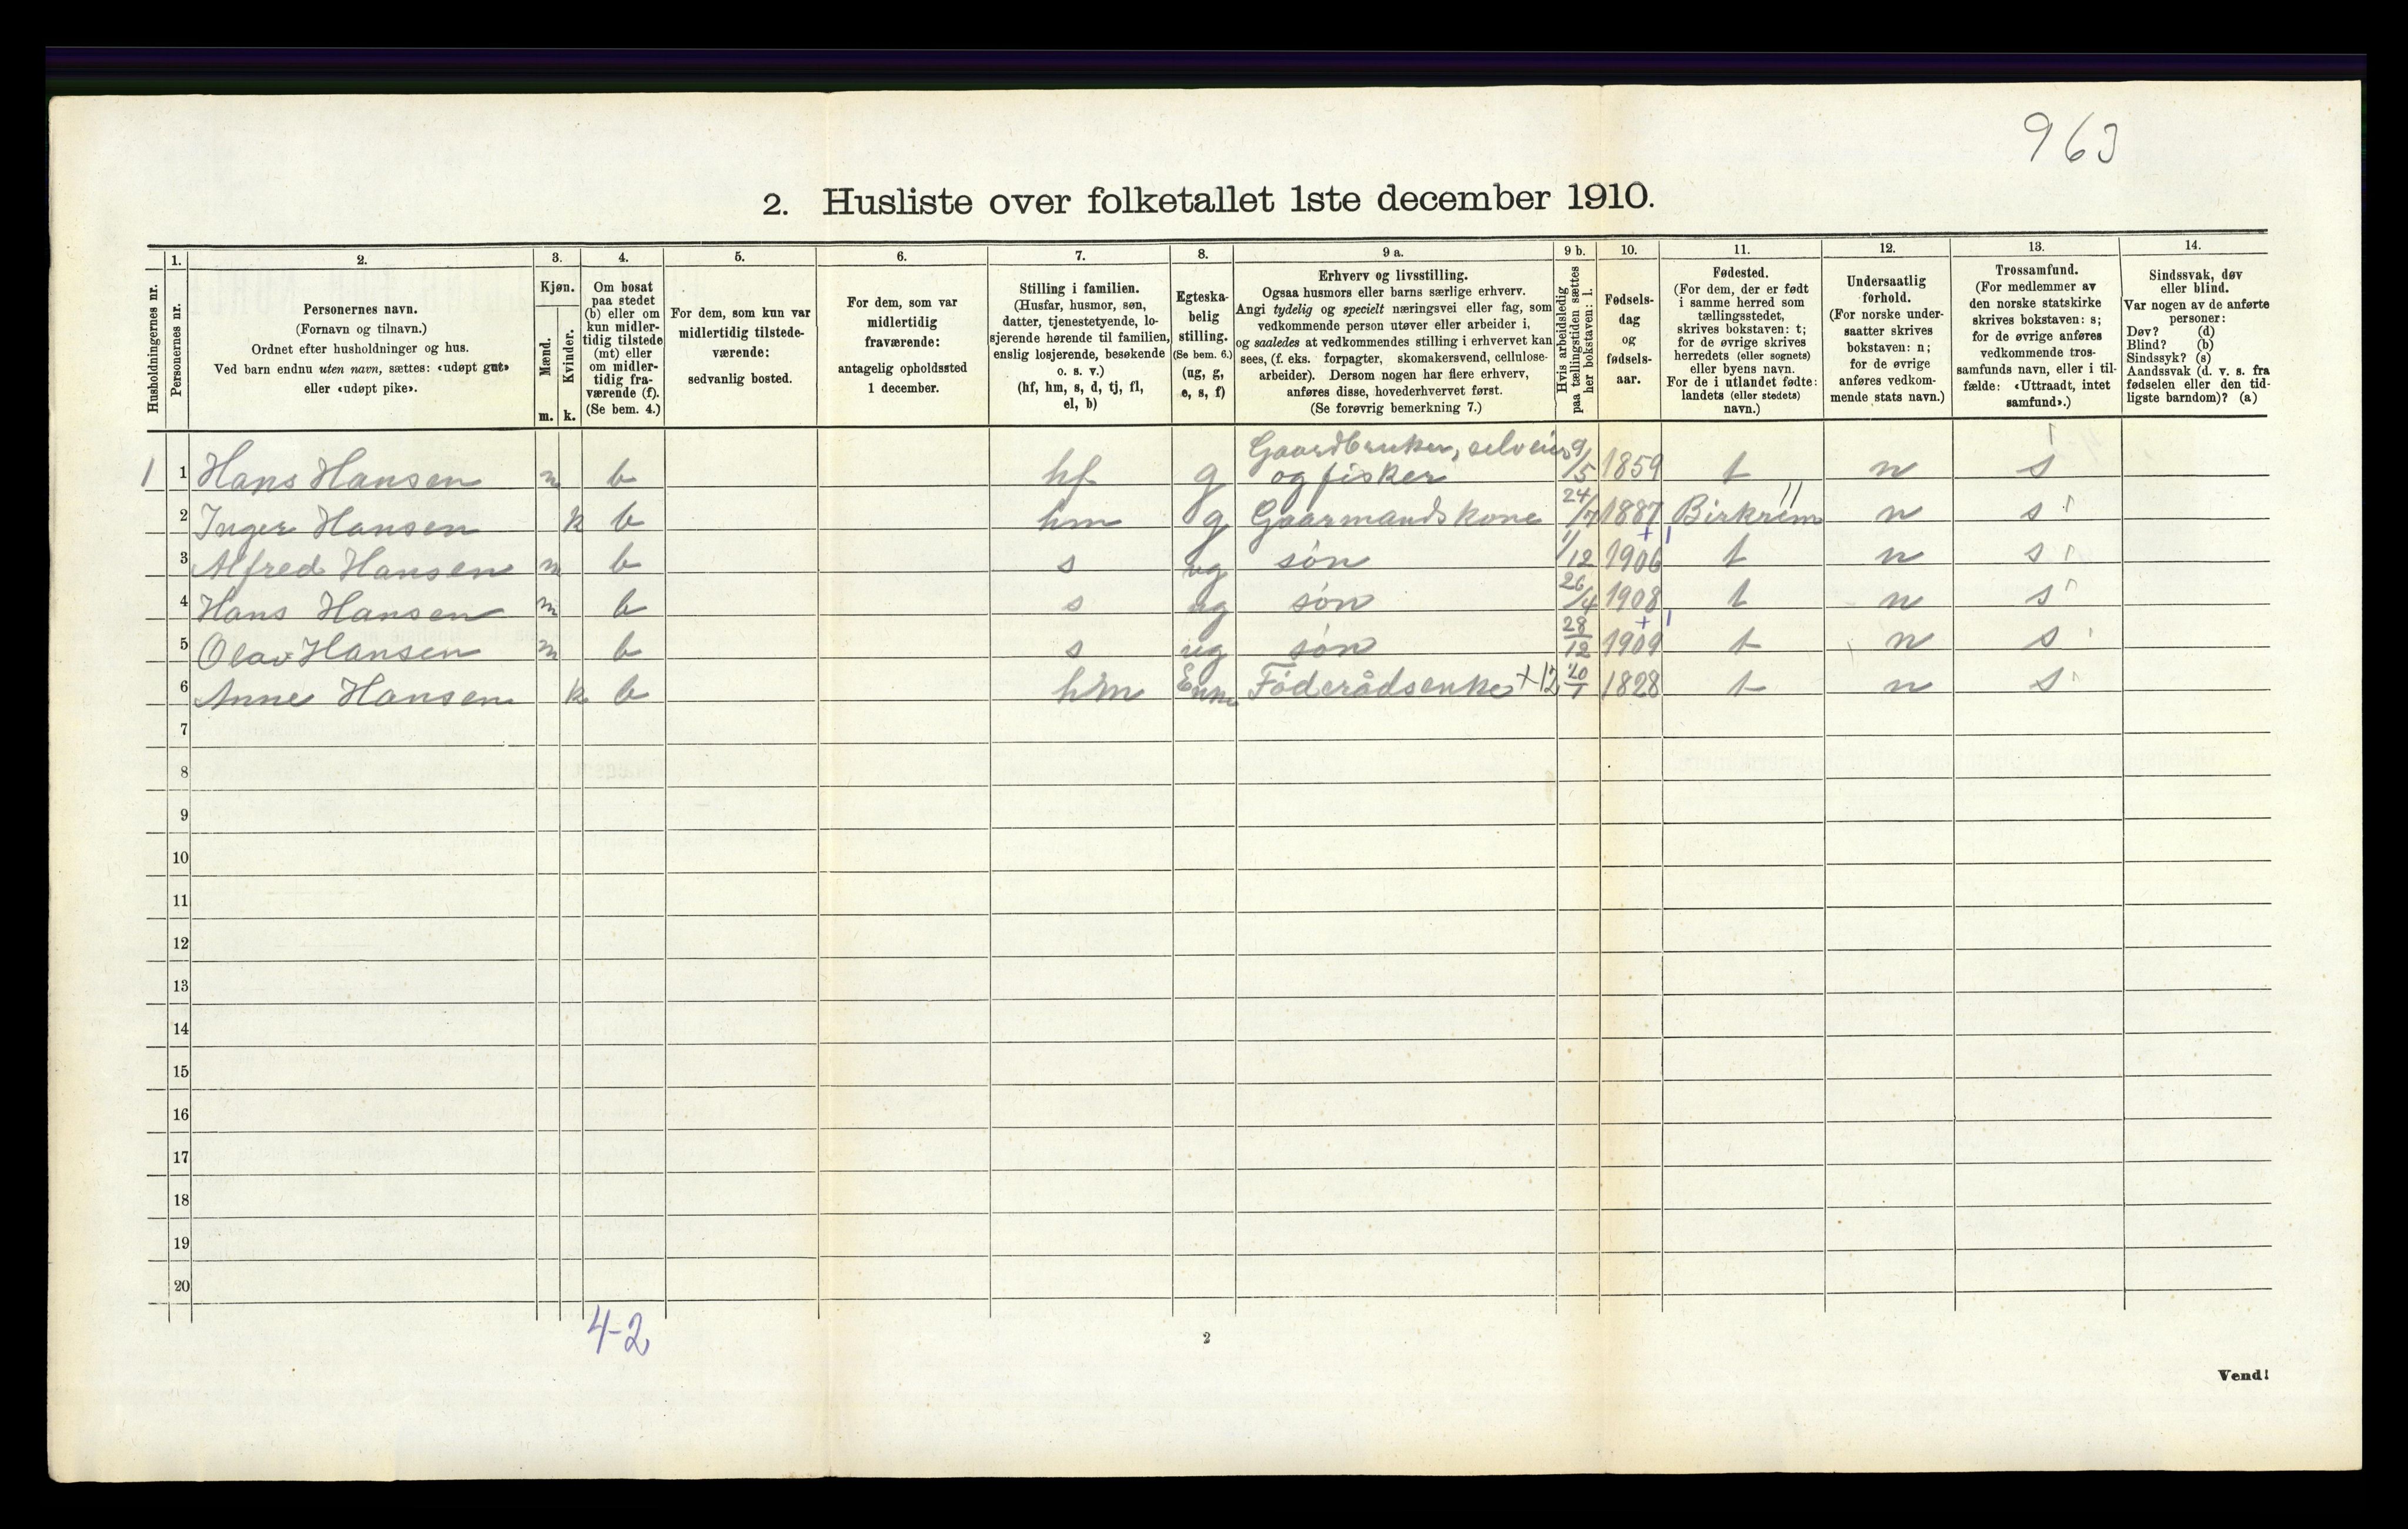 963
2. Husliste over folketallet 1ste december 1910.
Husholdningernes nr.
1.
Personernes nr.
2.
Personernes navn.
(Fornavn og tilnavn.)
Ordnet efter husholdninger og hus.
Ved barn endnu uten navn, sættes: «udøpt gut»
eller «udøpt pike».
3.
Kjøn.
Mænd.
Kvinder.
m. k.
4.
Om bosat
paa stedet
(b) eller om
kun midler-
tidig tilstede
(mt) eller
om midler-
tidig fra-
værende (f).
(Se bem. 4.)
5.
For dem, som kun var
midlertidig tilstede-
værende:
sedvanlig bosted.
6.
For dem, som var
midlertidig
fraværende:
antagelig opholdssted
1 december.
7.
Stilling i familien.
(Husfar, husmor, søn,
datter, tjenestetyende, lo-
sjerende hørende til familien,
enslig losjerende, besøkende
o. s. v.)
(hf, hm, s, d, tj, fl,
el, b)
8.
Egteska-
belig
stilling.
(Se bem. 6.)
(ug, g,
e, s, f)
9 a.
Erhverv og livsstilling.
Ogsaa husmors eller barns særlige erhverv.
Angi tydelig og specielt næringsvei eller fag, som
vedkommende person utøver eller arbeider i,
og saaledes at vedkommendes stilling i erhvervet kan
sees, (f. eks. forpagter, skomakersvend, cellulose-
arbeider). Dersom nogen har flere erhverv,
anføres disse, hovederhvervet først.
(Se forøvrig bemerkning 7.)
9 b.
Hvis arbeidsledig
paa tællingstiden sættes
her bokstaven: l.
10.
Fødsels-
dag
og
fødsels-
aar.
11.
Fødested.
(For dem, der er født
i samme herred som
tællingsstedet,
skrives bokstaven: t;
for de øvrige skrives
herredets (eller sognets)
eller byens navn.
For de i utlandet fødte:
landets (eller stedets)
navn.)
12.
Undersaatlig
forhold.
(For norske under-
saatter skrives
bokstaven: n;
for de øvrige
anføres vedkom-
mende stats navn.)
13.
Trossamfund.
(For medlemmer av
den norske statskirke
skrives bokstaven: s;
for de øvrige anføres
vedkommende tros-
samfunds navn, eller i til-
fælde: «Uttraadt, intet
samfund».)
14.
Sindssvak, døv
eller blind.
Var nogen av de anførte
personer:
Døv? (d)
Blind? (b)
Sindssyk? (s)
Aandssvak (d. v. s. fra
fødselen eller den tid-
ligste barndom)? (a)
1 1 Hans Hansen m b hf g Gaardbruker, selveier og fisker 9/5 1859 t n s
2 Inger Hansen k b hm g Gaarmandskone 24/7 1887 Birkrem n s
3 Alfred Hansen m b s ug søn 1/12 1906 t n s
4 Hans Hansen m b s ug søn 26/4 1908 t n s
5 Olav Hansen m b s ug søn 28/12 1909 t n s
6 Anne Hansen k b hm Enke Föderådsenke +12 20/1 1828 t n s
7
8
9
10
11
12
13
14
15
16
17
18
19
20
4-2
2
Vend!